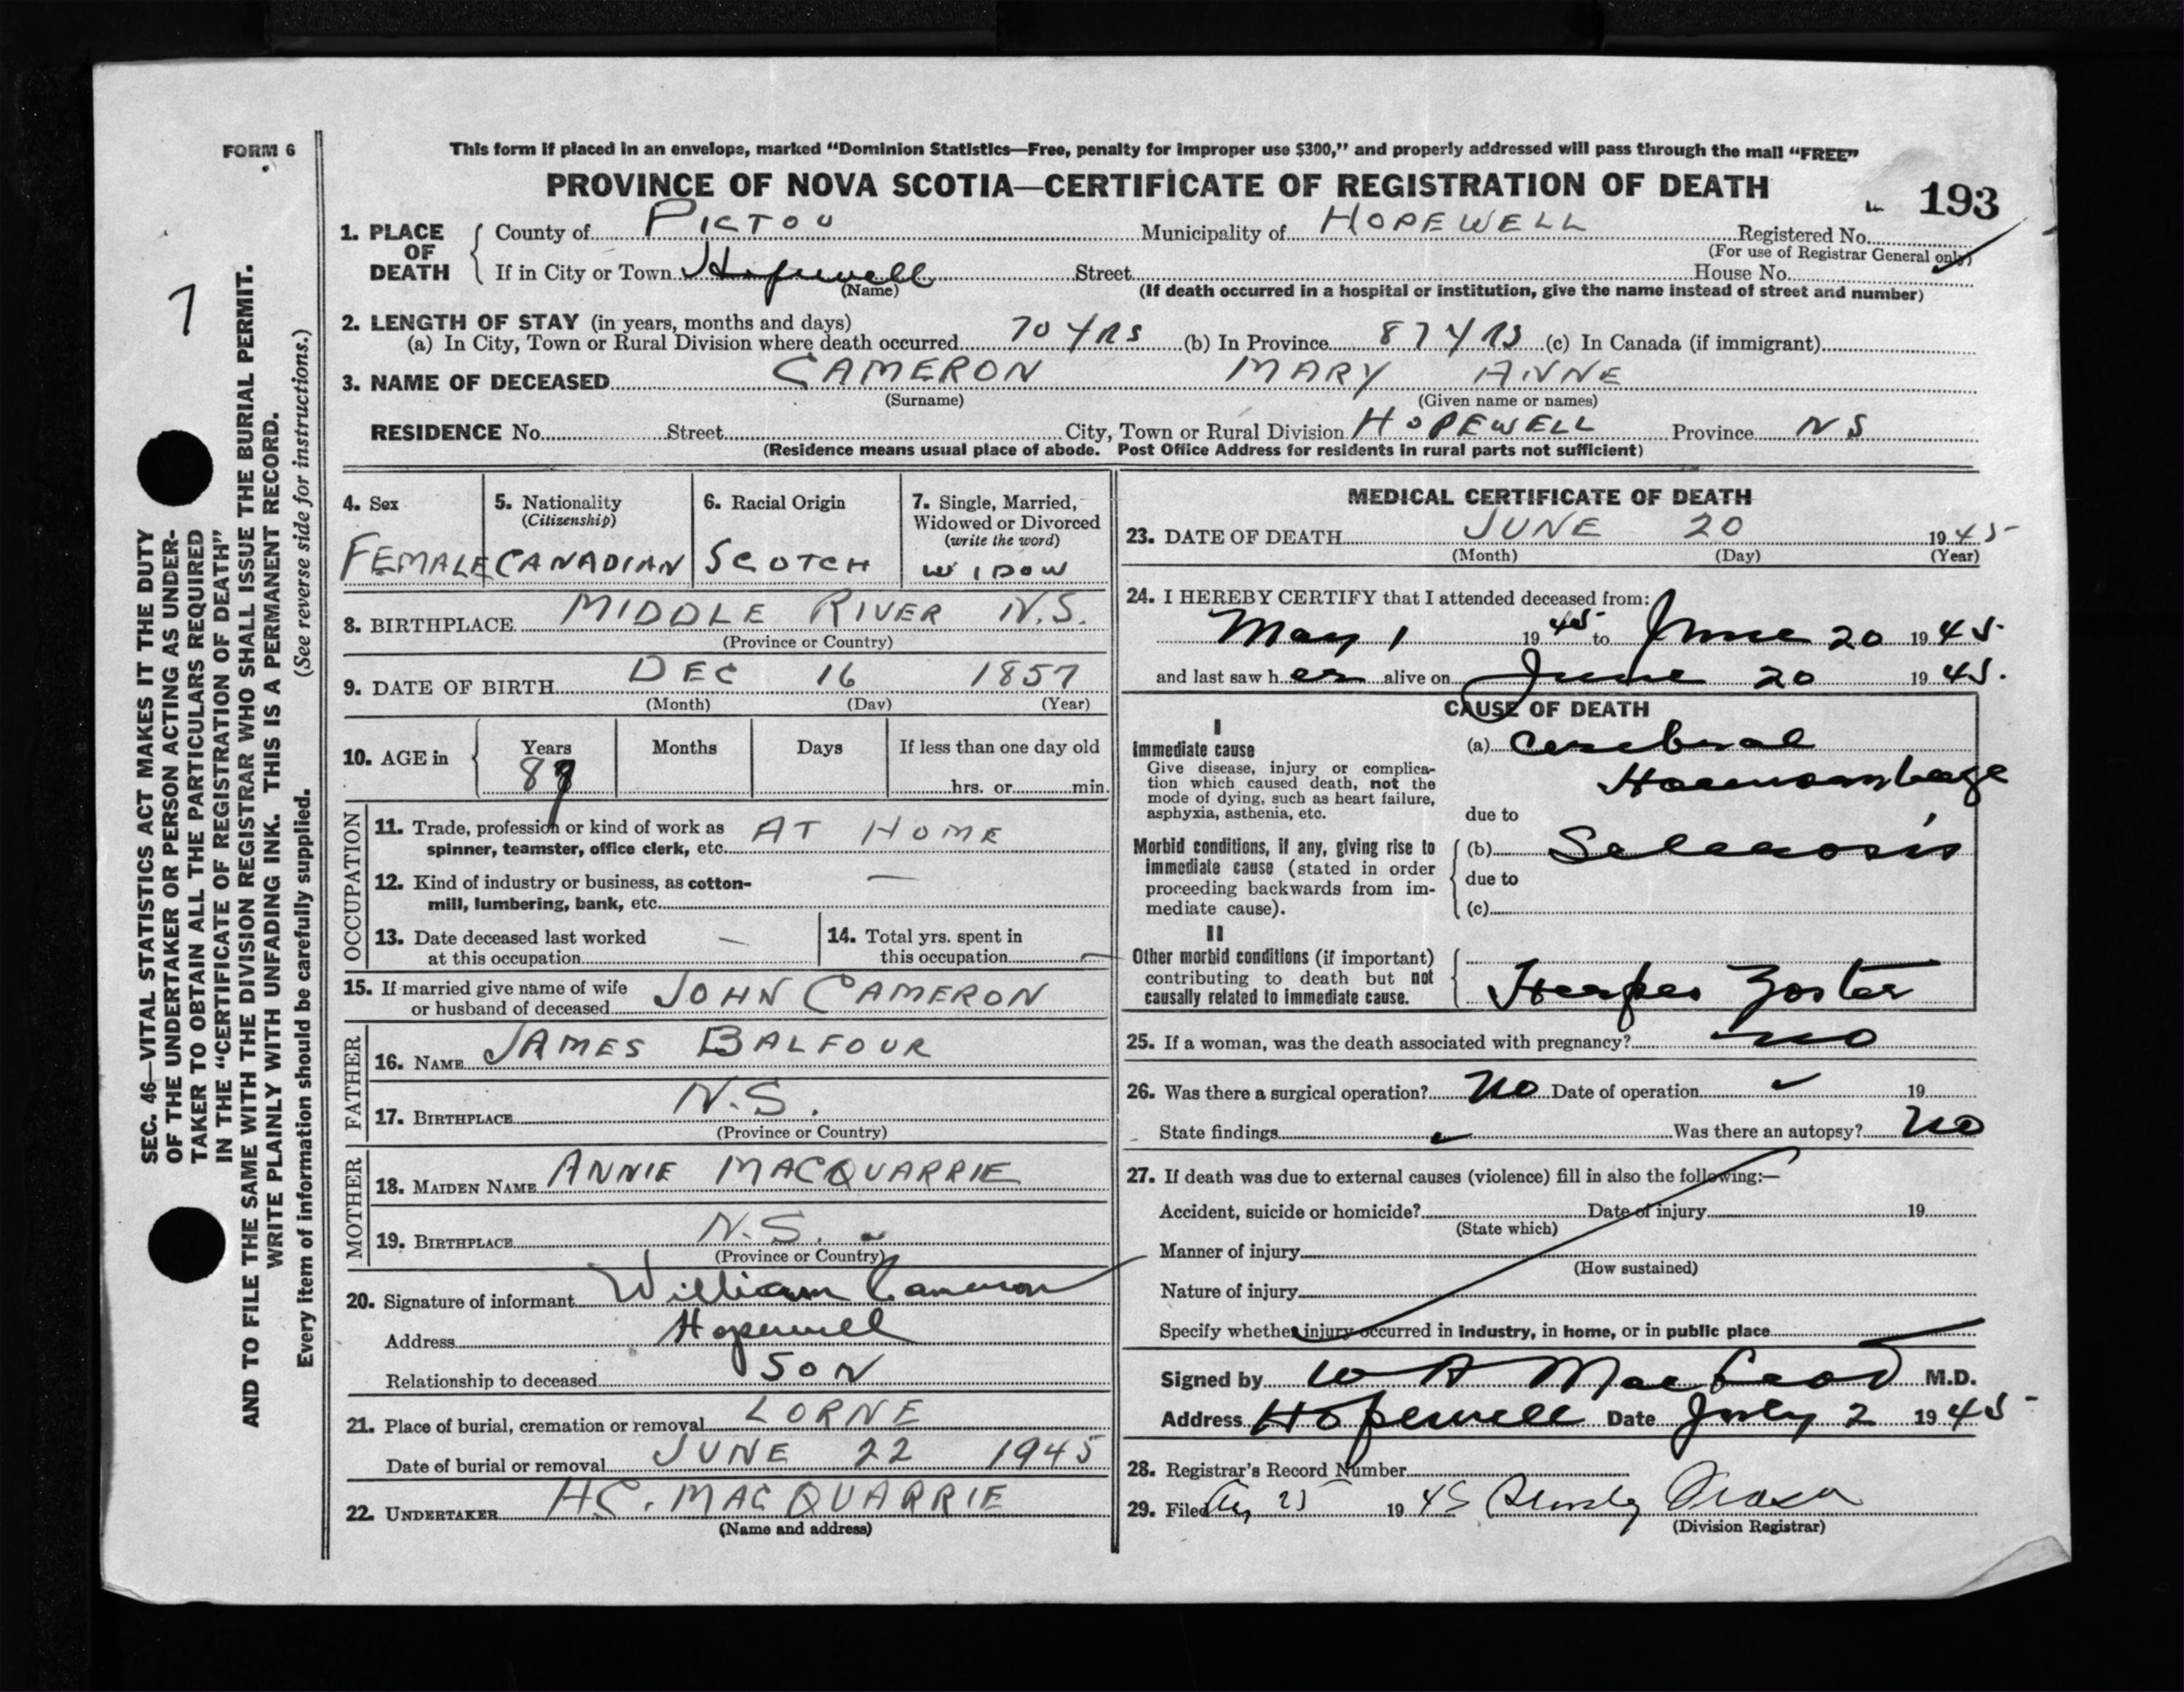 FORM 6
This form if placed in an envelope, marked “Dominion Statistics—Free, penalty for improper use $300,” and properly addressed will pass through the mail “FREE”
PROVINCE OF NOVA SCOTIA—CERTIFICATE OF REGISTRATION OF DEATH
193
1. PLACE OF DEATH
County of PICTOU Municipality of HOPEWELL Registered No.
(For use of Registrar General only)
If in City or Town Hopewell Street House No.
(Name) (If death occurred in a hospital or institution, give the name instead of street and number)
2. LENGTH OF STAY (in years, months and days)
(a) In City, Town or Rural Division where death occurred 70 YRS (b) In Province 87 YRS (c) In Canada (if immigrant)
3. NAME OF DECEASED CAMERON MARY ANNE
(Surname) (Given name or names)
RESIDENCE No. Street City, Town or Rural Division HOPEWELL Province NS
(Residence means usual place of abode. Post Office Address for residents in rural parts not sufficient)
7
SEC. 46—VITAL STATISTICS ACT MAKES IT THE DUTY
OF THE UNDERTAKER OR PERSON ACTING AS UNDER-
TAKER TO OBTAIN ALL THE PARTICULARS REQUIRED
IN THE “CERTIFICATE OF REGISTRATION OF DEATH”
AND TO FILE THE SAME WITH THE DIVISION REGISTRAR WHO SHALL ISSUE THE BURIAL PERMIT.
WRITE PLAINLY WITH UNFADING INK. THIS IS A PERMANENT RECORD.
Every item of information should be carefully supplied. (See reverse side for instructions.)
4. Sex
FEMALE
5. Nationality
(Citizenship)
CANADIAN
6. Racial Origin
SCOTCH
7. Single, Married,
Widowed or Divorced
(write the word)
WIDOW
8. BIRTHPLACE MIDDLE RIVER N.S.
(Province or Country)
9. DATE OF BIRTH DEC 16 1857
(Month) (Day) (Year)
10. AGE in
Years Months Days If less than one day old
87 hrs. or min.
OCCUPATION
11. Trade, profession or kind of work as
spinner, teamster, office clerk, etc. AT HOME
12. Kind of industry or business, as cotton-
mill, lumbering, bank, etc. —
13. Date deceased last worked
at this occupation —
14. Total yrs. spent in
this occupation —
15. If married give name of wife
or husband of deceased JOHN CAMERON
FATHER
16. NAME JAMES BALFOUR
17. BIRTHPLACE N.S.
(Province or Country)
MOTHER
18. MAIDEN NAME ANNIE MACQUARRIE
19. BIRTHPLACE N.S.
(Province or Country)
20. Signature of informant William Cameron
Address Hopewell
Relationship to deceased SON
21. Place of burial, cremation or removal LORNE
Date of burial or removal JUNE 22 1945
22. UNDERTAKER H.C. MACQUARRIE
(Name and address)
MEDICAL CERTIFICATE OF DEATH
23. DATE OF DEATH JUNE 20 1945
(Month) (Day) (Year)
24. I HEREBY CERTIFY that I attended deceased from:
May 1 1945 to June 20 1945
and last saw her alive on June 20 1945.
CAUSE OF DEATH
I
Immediate cause
Give disease, injury or complica-
tion which caused death, not the
mode of dying, such as heart failure,
asphyxia, asthenia, etc.
(a) Cerebral
Haemorrhage
due to
Morbid conditions, if any, giving rise to
immediate cause (stated in order
proceeding backwards from im-
mediate cause).
(b)
due to
(c)
II
Other morbid conditions (if important)
contributing to death but not
causally related to immediate cause.
Herpes Zoster
25. If a woman, was the death associated with pregnancy? no
26. Was there a surgical operation? No Date of operation 19
State findings Was there an autopsy? No
27. If death was due to external causes (violence) fill in also the following:—
Accident, suicide or homicide? Date of injury 19
(State which)
Manner of injury
(How sustained)
Nature of injury
Specify whether injury occurred in industry, in home, or in public place
Signed by W A MacLeod M.D.
Address Hopewell Date July 2 1945
28. Registrar's Record Number
29. Filed Aug 25 1945
(Division Registrar)